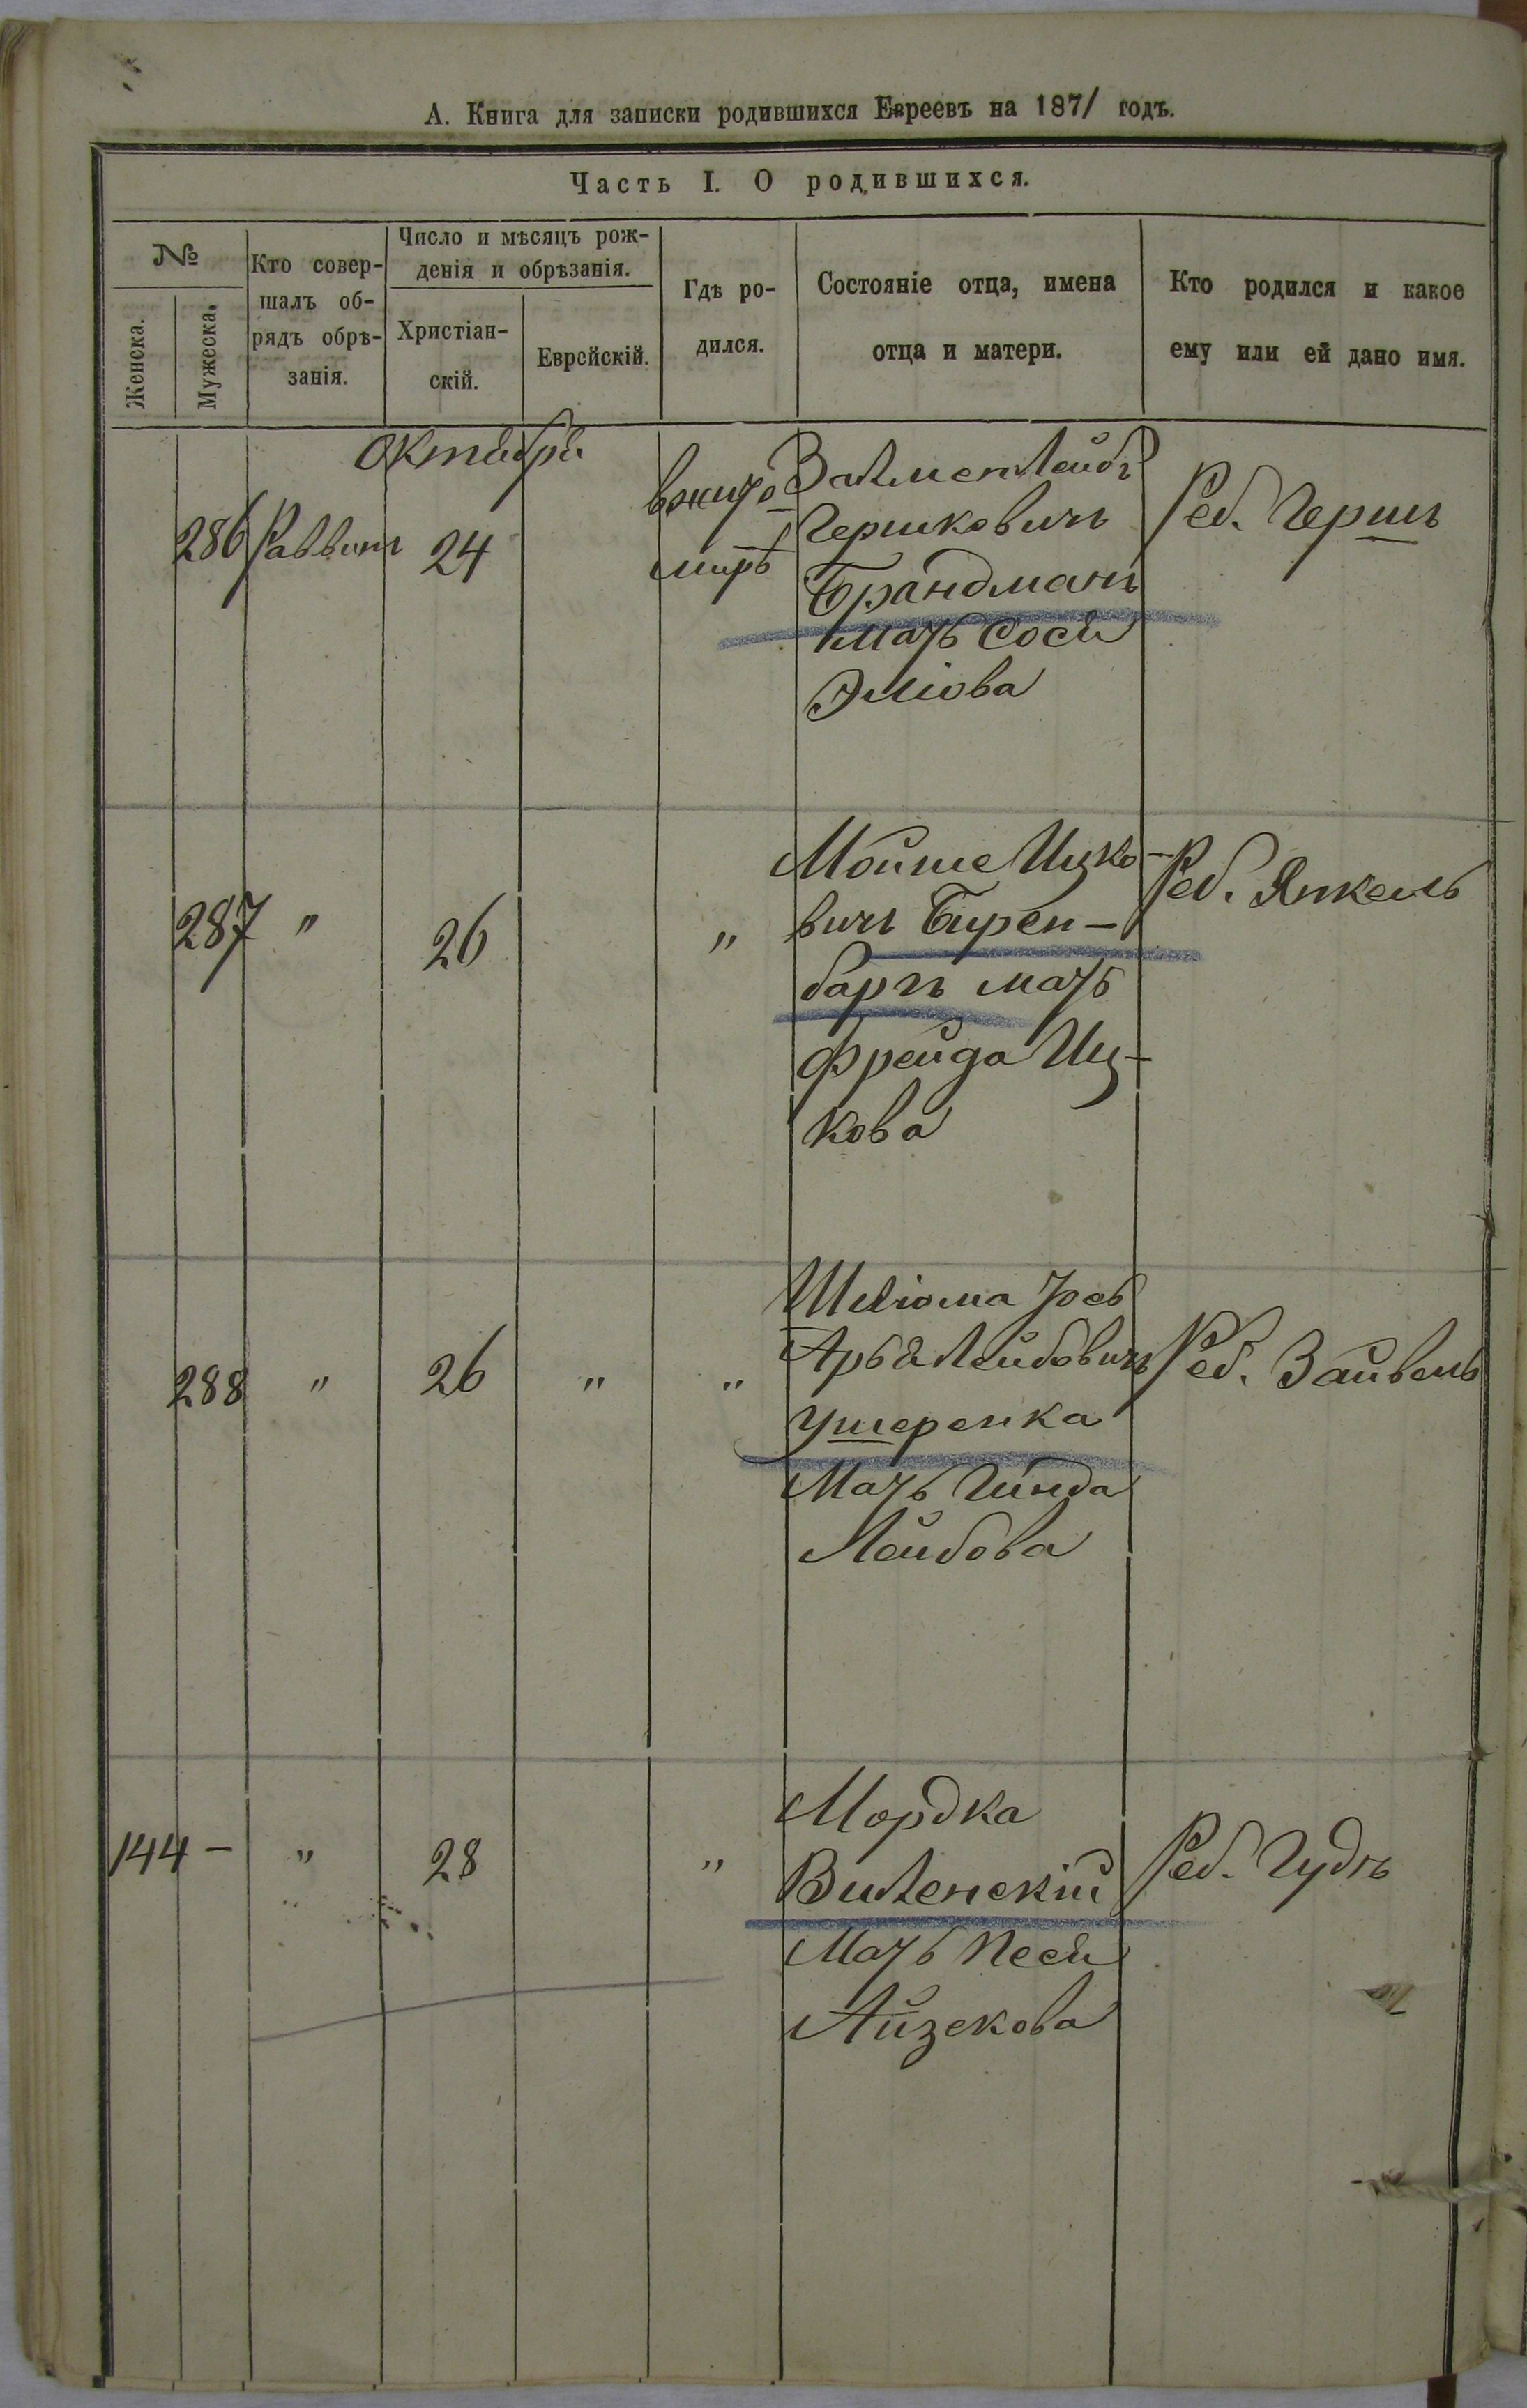 А. Книга для записки родившихся Евреевъ на 1871 годъ.
Часть I. О родившихся.
№
Женска.
Мужеска.
Кто совер-
шалъ об-
рядъ обрѣ-
занія.
Число и мѣсяцъ рож-
денія и обрѣзанія.
Христіан-
скій.
Еврейскій.
Гдѣ ро-
дился.
Состояніе отца, имена
отца и матери.
Кто родился и какое
ему или ей дано имя.
Октября
286 Раввинъ 24
вжито
мирѣ
Залмен Лейбъ
Гершковичъ
Брандманъ
мать Сося
Эліова
Реб. Гершъ
287 " 26 "
Мойше Ицко-
вичъ Бирен-
баргъ мать
Фрейда Иц-
кова
Реб. Янкель
288 " 26 " "
Шліома Іось
Арья Лейбовичъ
Ушеренка
Мать Гинда
Лейбова
Реб. Зайвель
144 - " 28 "
Мордка
Виленскій
Мать Песя
Айзекова
Реб. Гудль